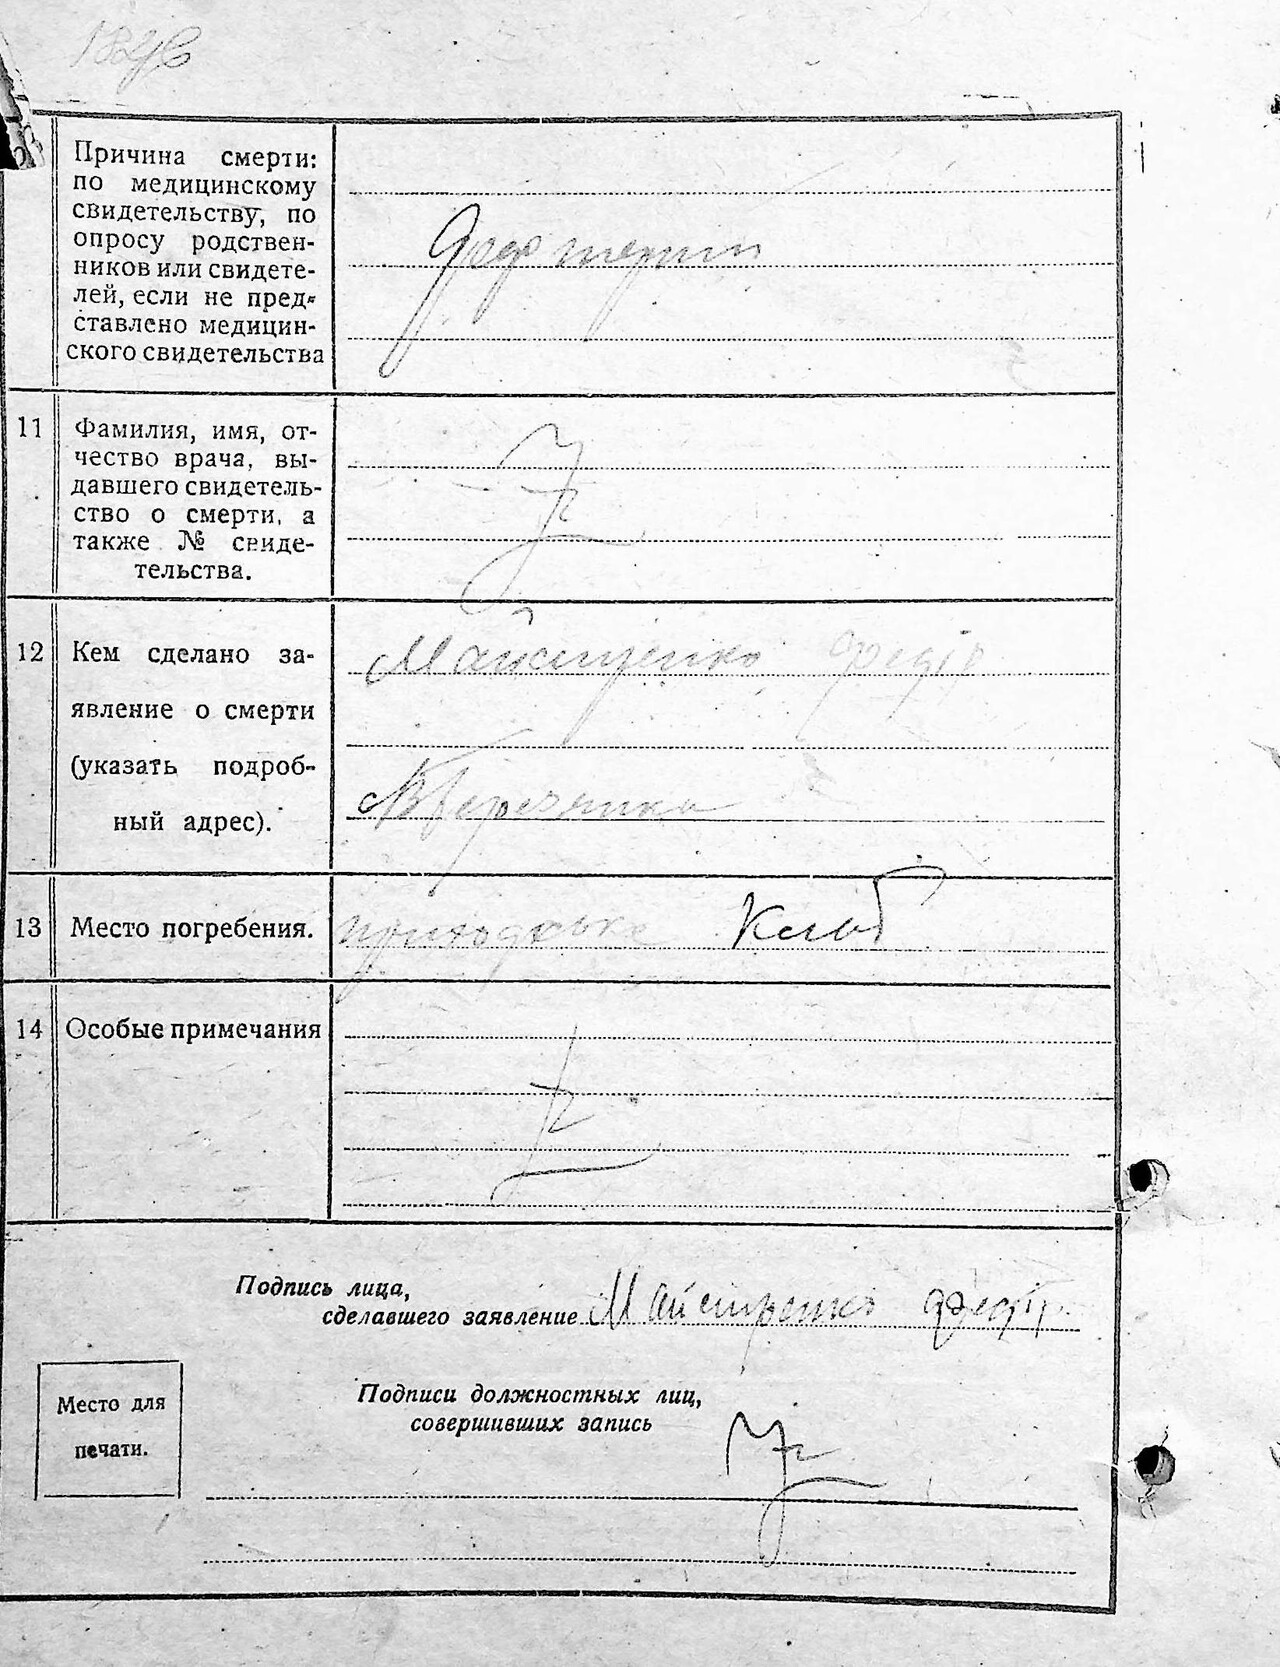 Причина смерти:
по медицинскому
свидетельству, по
опросу родствен-
ников или свидете-
лей, если не пред-
ставлено медицин-
ского свидетельства
11 Фамилия, имя, от-
чество врача, вы-
давшего свидетель-
ство о смерти, а
также № свиде-
тельства.
12 Кем сделано за-
явление о смерти
(указать подроб-
ный адрес).
Майстренко Федір
13 Место погребения.
14 Особые примечания
Подпись лица,
сделавшего заявление Майстренко Федір.
Подписи должностных лиц,
совершивших запись
Место для
печати.